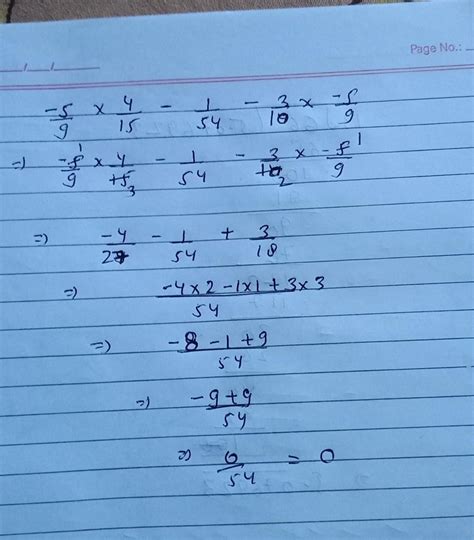 Page No.:
-5/9 × 4/15 - 1/54 - 3/10 × -5/9
=) -5/9 1 × 4/15 3 - 1/54 - 3/10 2 × -5/9 1
=) -4/27 - 1/54 + 3/18
=) -4×2 -1×1 +3×3/54
=) -8 -1 +9/54
=) -9+9/54
=) 0/54 = 0